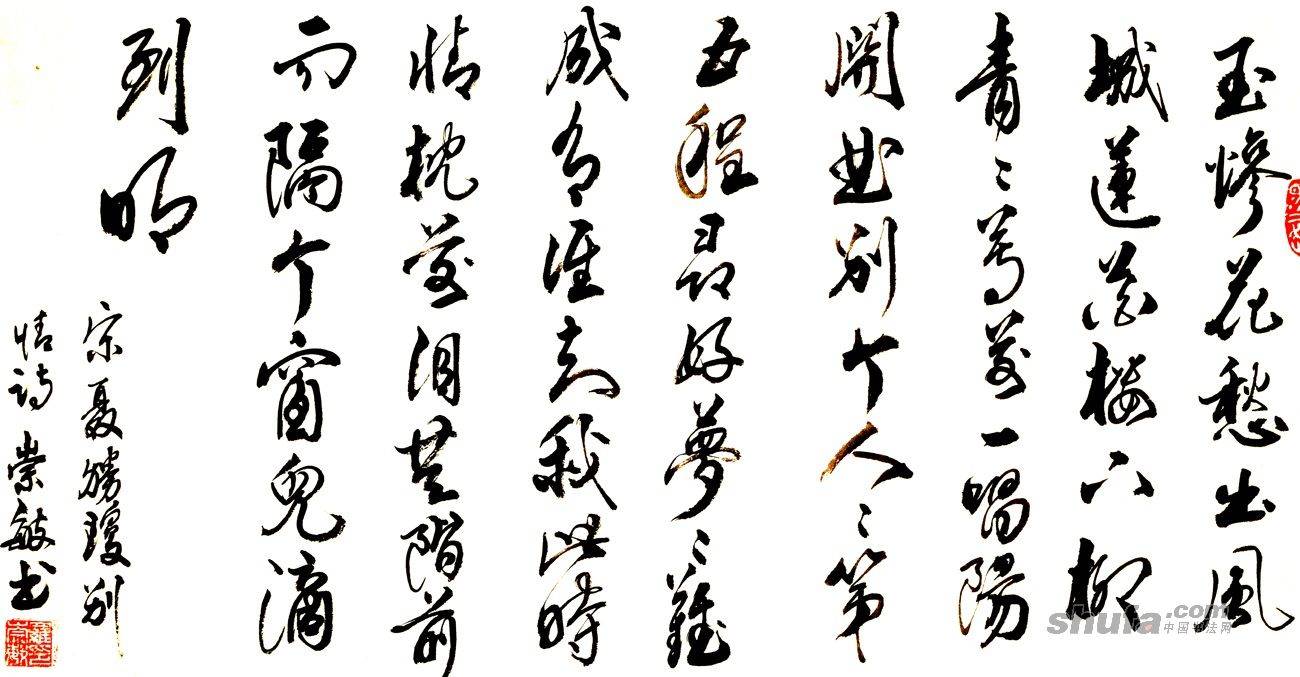 玉慘花愁出風
城蓮花樓下柳
青〻尊前一唱陽
關曲別个人〻第
五程尋好夢〻難
成有誰知我此時
情枕前泪共階前
雨隔个窗兒滴
到明
宋聶勝瓊別
情詩 崇敏书
shufa.com
中国书法网